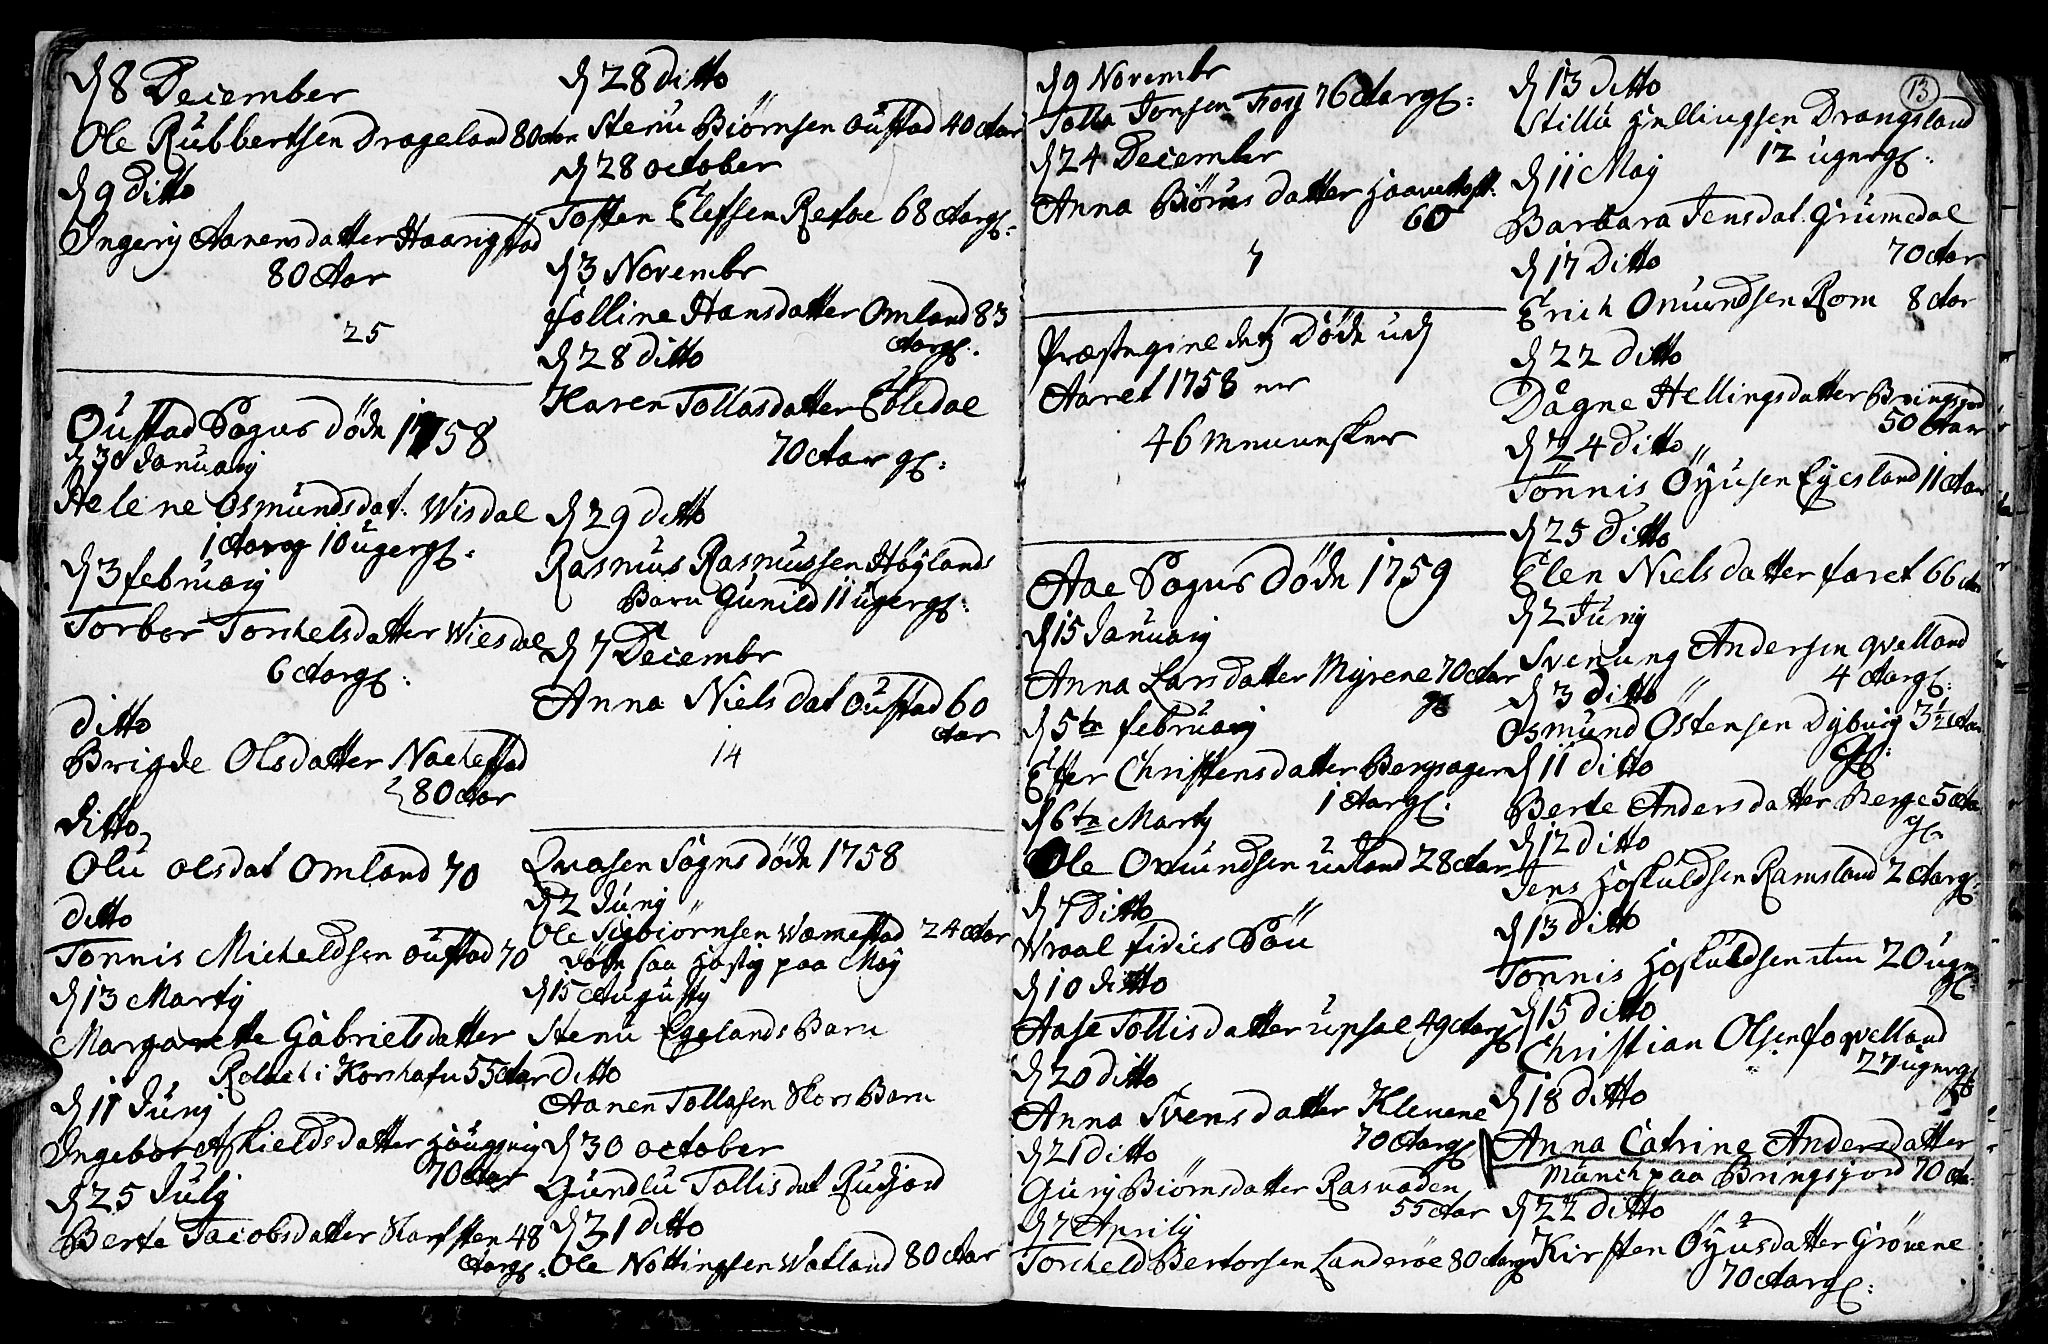 d 8 December
Ole Rubbertsen Drageland 80 Aar
d 9 ditto
Ingerij Aanensdatter Haarigstad
80 Aar
25
Oustad Sogns döde 1758
d 30 Januarij
Helene Osmundsdat. Wisdal
1 Aarg 10 ugerg:
d 3 februarij
Torbor Torkelsdatter Wiesdal
6 Aarg:
ditto
Brigde Olsdatter Naelestad
80 Aar
ditto
Olu olsdat Omland 70
ditto
Tönnis Micheldsen oustad 70
d 13 Martij
Margarette Gabrielsdatter
i Korshafn 55 Aar
d 11 Junij
Ingebor Askieldsdatter
70 Aar
d 25 Julij
Berte Jacobsdatter 48
Aarg:
d 28 ditto
Stenu Biörnsen Oustad 40 Aar
d 28 october
Tosten Elefsen Refoe 68 Aarg:
d 3 Novembr
Jolline Hansdatter Omland 83
Aarg:
d 28 ditto
Karen Tollasdatter Egledal
70 Aar g:
d 29 ditto
Rasmus Rasmussen Höylands
Barn Gunild 11 ugerg:
d 7 Decembr
Anna Nielsdat Oustad 60
Aar
14
Quasen Sogns döde 1758
d 2 Junij
Ole Sigbiörnsen Womestad 24 Aar
döde saa hastig paa Moy
d 15 Augustij
Stenu Egelands Barn
ditto
Aanen Tollasen Skors Barn
d 30 october
Gundlu Tollisdat Rudjord
d 31 ditto
Ole Nottingsen Watland 80 Aar
d 9 Novembr
Tolla Tonsen Froy 76 Aarg:
d 24 December
Anna Biörnsdatter
60
7
Præstegieldetz Döde udj
Aaret 1758 er
46 mennesker
Aae Sogns Döde 1759
d 15 Januarij
Anna Larsdatter Myrene 70 Aar
g
d 5te februarij
Ester Christensdatter Bergsagern
1 Aarg:
d 6te Martij
Ole Omundsen udland 28 Aar
d 7 Ditto
Wraal fidies Sön
d 10 ditto
Aase Tollisdatter upsal 49 Aarg
d 20 ditto
Anna Svensdatter Klevene
70 Aarg
d 21 ditto
Gurij Biörnsdatter Rasvaden
55 Aar
d 7 Aprilij
Torckeld Bertorsen Landeröe 80 Aarg
13
d 13 ditto
Stillu Hellingsen Drangsland
12 ugerg:
d 11 Maij
Barbara Jensdat. Grumedal
70 Aar
d 17 Ditto
Erich Omundsen Rom 8 Aar
d 22 ditto
Dagne Hellingsdatter Bringsjord
50 Aar
d 24 ditto
Tönnis Öyusen Egesland 11 Aar
d 25 Ditto
Elen Nielsdatter faret 66 Aar
d 2 Junij
Svenung Andersen qvelland
4 Aarg:
d 3 ditto
Osmund Östensen Dybvig 3½ Aar
g:
d 11 ditto
Berte Andersdatter Berge 5 Aar
g
d 12 ditto
Jens Hoskuldsen Ramsland 2 Aarg:
d 13 ditto
Tönnis Hoskuldsen item 20 uger
g:
d 15 ditto
Christian Olsen foqvelland
27 ugerg
d 18 ditto
Anna Catrine Andersdatter
Munch paa Bringsjord 70 Aar
d 22 ditto
Kirsten Öyusdatter Grövene
70 Aarg: